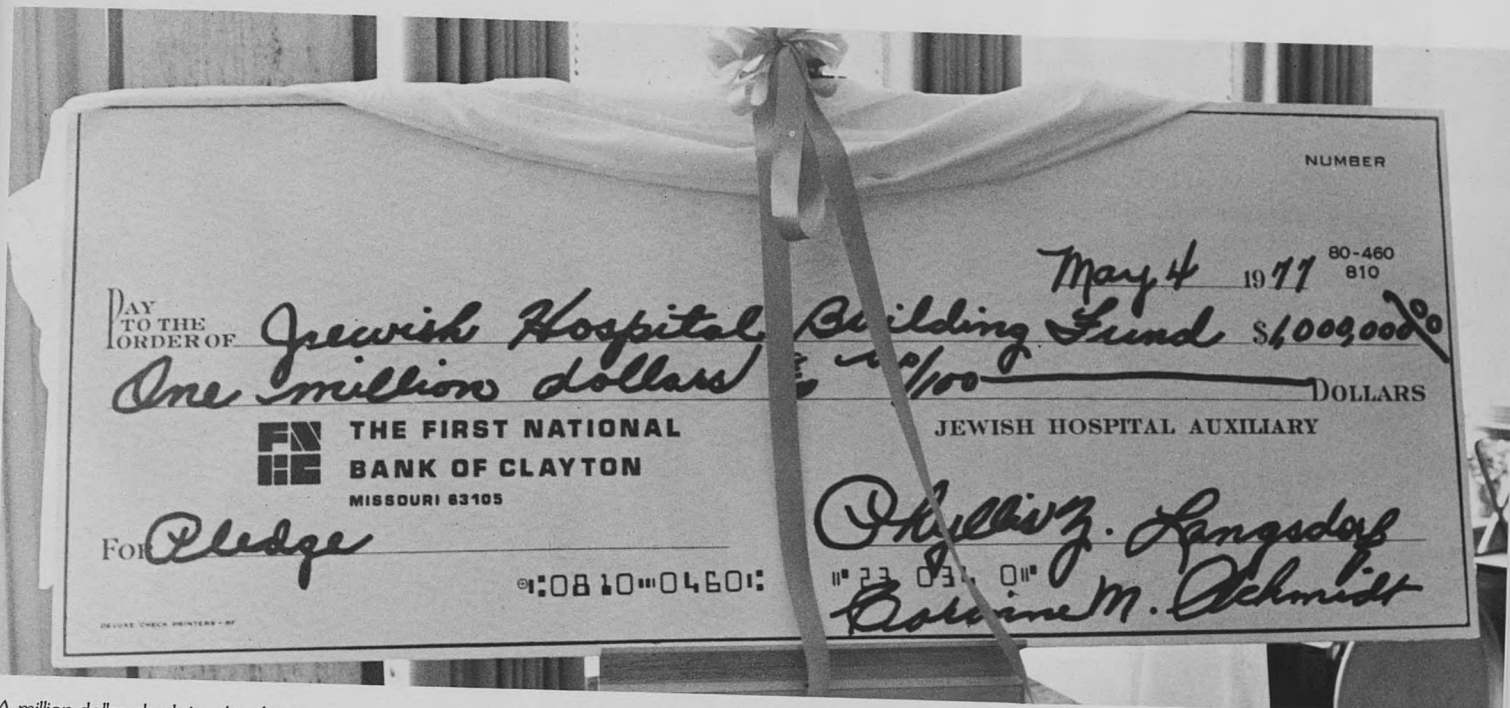 NUMBER
May 4 1977 80-460
810
PAY
TO THE
ORDER OF Jewish Hospital Building Fund $1,000,000
One million dollars /100 DOLLARS
FNBC THE FIRST NATIONAL
BANK OF CLAYTON
MISSOURI 63105
JEWISH HOSPITAL AUXILIARY
For Pledge
Phyllis Z. Langsdorf
⑆0810⑉0460⑆
Corinne M. Schmidt
DELUXE CHECK PRINTERS
A million dollar